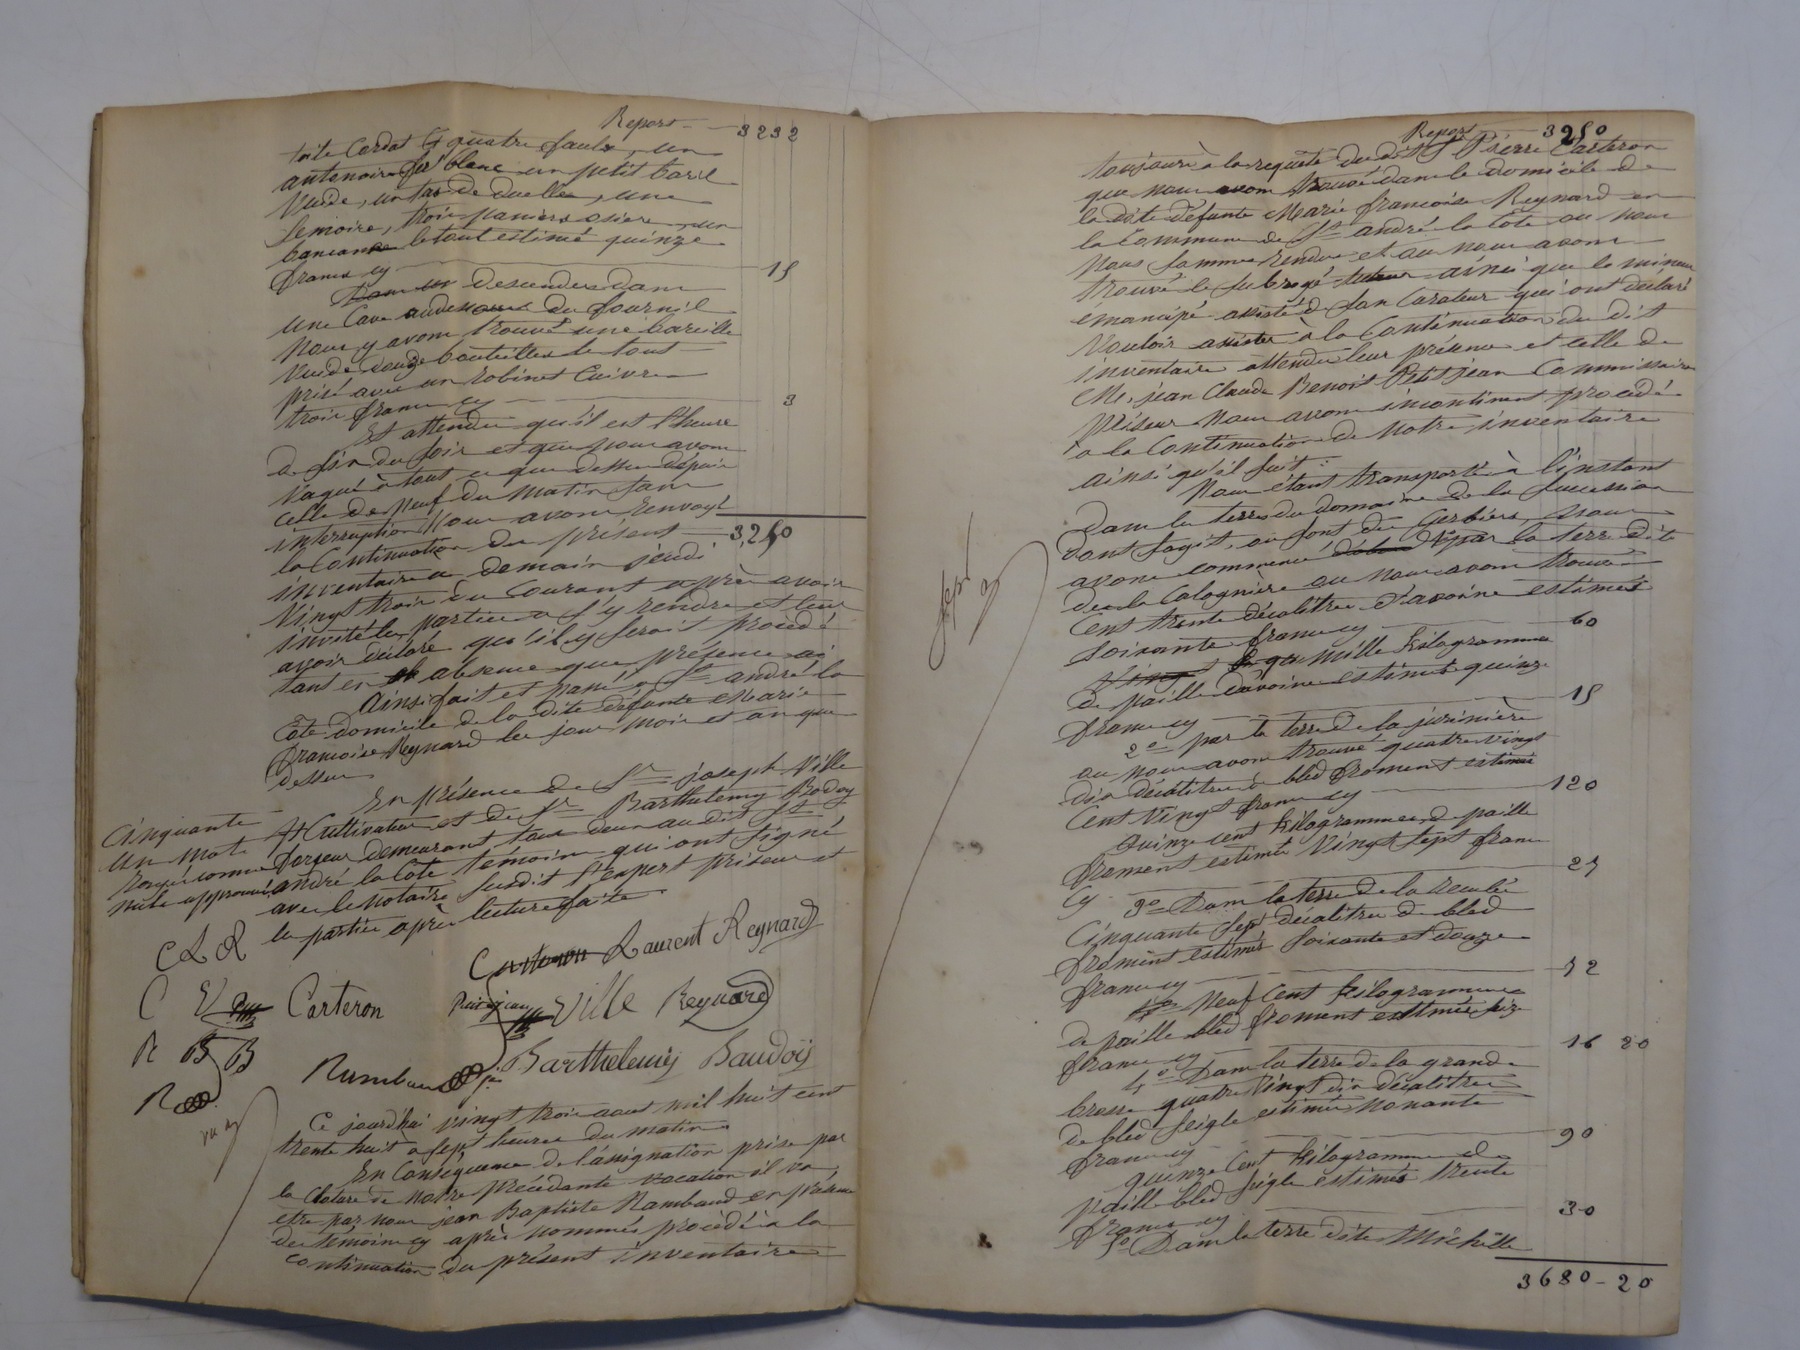 Report — 3232
toile Cordat & quatre faulx, un
antonoir fer blanc un petit baril
vuide, un tas de duelles, une
semoire, trois paniers osiere, un
bancanne le tout estimé quinze
francs cy — 15
descendus dans
une Cave audessous du fournil
nous y avons trouvé une bareille
vuide douze bouteilles le tout
prisé avec un robinet Cuivre
trois francs cy — 3
Et attendu qu'il est l'heure
de six du soir et que nous avons
vaqué à tout ce que dessus dépuis
celle de neuf du matin sans
interruption Nous avons renvoyé
la Continuation du présent — 3,250
inventaire a demain jeudi
Vingt trois du Courant après avoir
invité les parties a s'y rendre et leur
avoir déclaré qu'il y seroit procédé
tant en absence que présence
Ainsi fait et passé a St andré la
Côte domicile de la dite défunte Marie
françoise Reynard les jour mois et an que
dessus
En présence de Sr joseph Ville
Cultivateur et de Sr Barthelemy Bodoy
forgeur demeurant tous deux au dit St
andré la Côte temoins qui ont signé
avec le notaire susdit l'expert priseur et
les parties après lecture faite
Cinquante
un mots
rayés comme
nuls approuvés
C L R
Carteron Laurent Reynard
C V Carteron Petitjean Ville Reynard
R B B
Barthelemy Baudoy
R
Rambaud
Ce jourd'hui vingt trois aout mil huit cent
trente huit a sept heures du matin
En Conséquence de l'assignation prise par
la Cloture de notre précédante vacation il va
etre par nous jean Baptiste Rambaud en présence
des témoins cy après nommés procédé à la
continuation du présent inventaire
Report — 3250
toujours à la requête du dit Sr Pierre Carteron
que nous avons trouvé dans le domicile de
la dite défunte Marie françoise Reynard en
la Commune de St andré la Côte ou nous
nous sommes rendus et ou nous avons
trouvé le subrogé tuteur ainsi que le mineur
emancipé assisté de son Curateur qui ont déclaré
Vouloir assister à la Continuation du dit
inventaire attendu leur présence et celle de
Me jean Claude Benoit Petitjean Commissaire
Priseur nous avons incontinent procédé
a la Continuation de notre inventaire
ainsi qu'il suit :
Nous étant transporté à l'instant
dans les terres du domaine de la succession
dont s'agit, avons commencé par la terre dite
de la Calognière ou nous avons trouvé
Cent trente décalitres d'avoine estimés
soixante francs cy — 60
mille kilogrammes
de paille d'avoine estimés quinze
francs cy — 15
2o par la terre de la jarinière
ou nous avons trouvé quatre vingt
dix décalitres bled froment estimés
Cent Vingt francs cy — 120
Quinze cent kilogrammes de paille
froment estimés Vingt sept francs
Cy — 27
3o Dans la terre de la
Cinquante sept décalitres de bled
froment estimés soixante et douze
francs cy — 72
Neuf Cent kilogrammes
de paille bled froment estimés seize
francs cy — 16 20
4o Dans la terre de la grande
brosse quatre Vingt dix décalitres
de bled seigle estimés Nonante
francs cy — 90
quinze Cent kilogrammes de
paille bled seigle estimés trente
francs cy — 30
5o Dans la terre dite Michille
3680 - 20